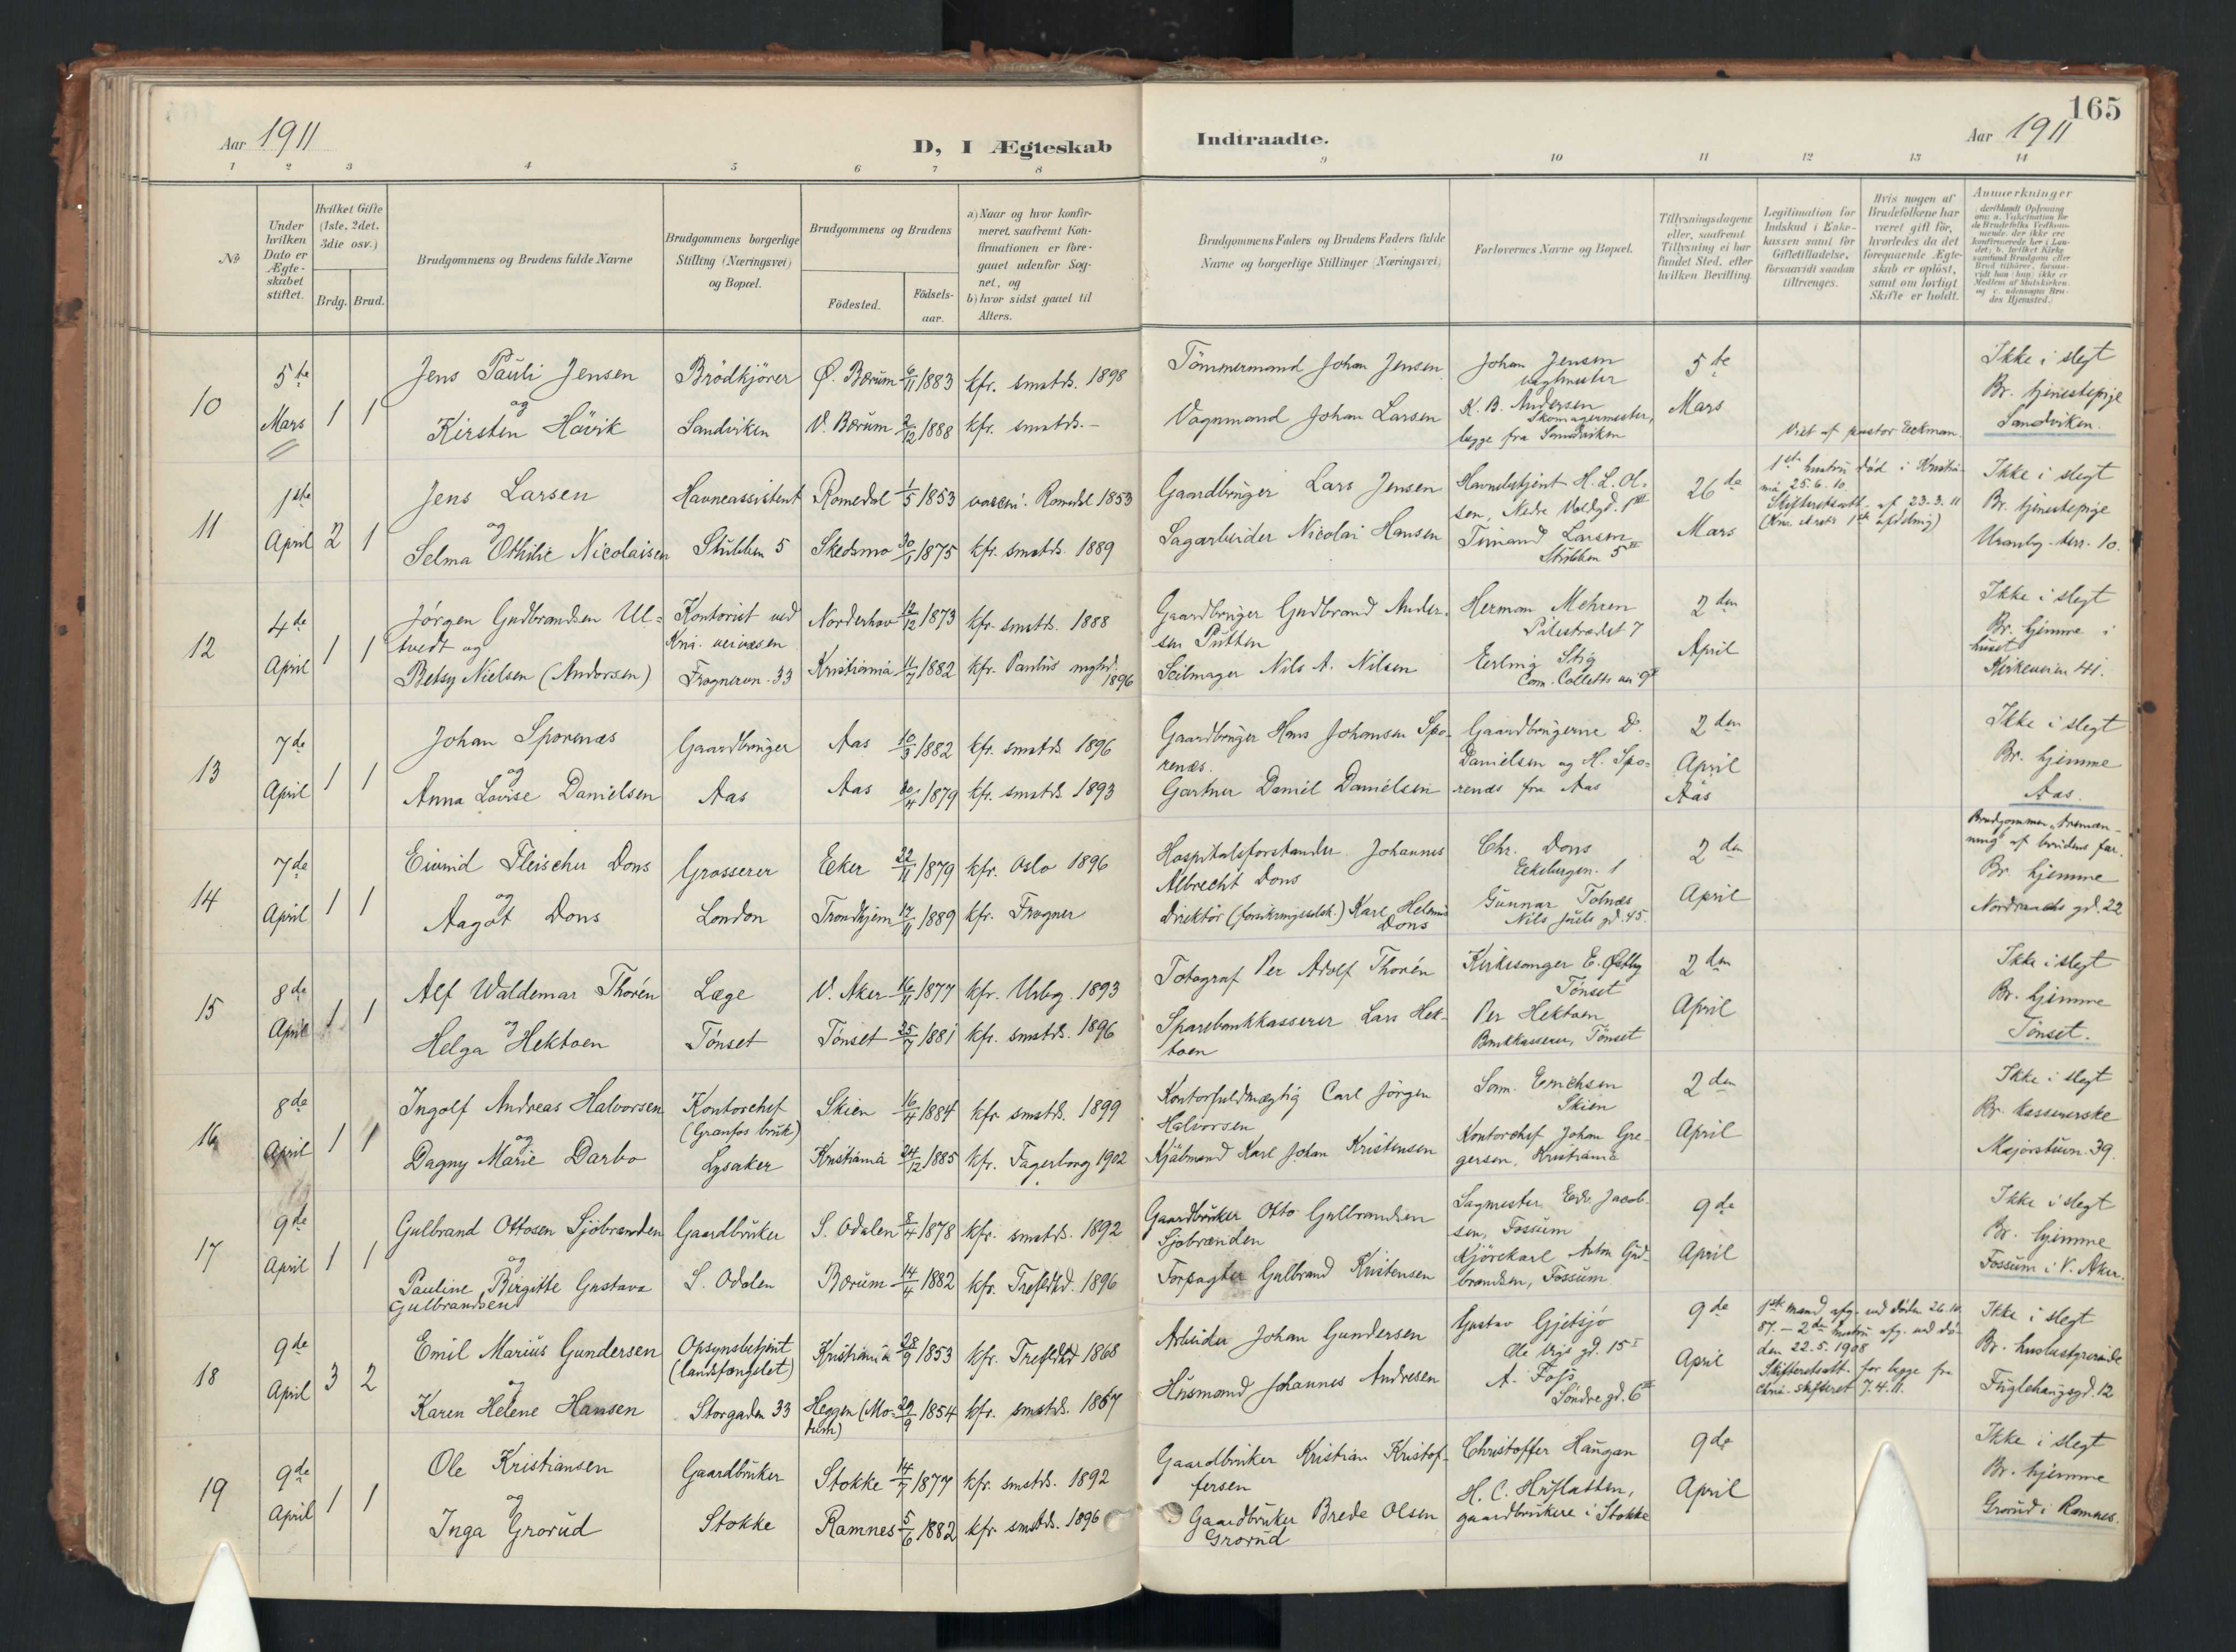 165
Aar 1911
D, I Ægteskab
Indtraadte.
Aar 1911
1 2 3 4 5 6 7 8 9 10 11 12 13 14
No
Under hvilken Dato er Ægteskabet stiftet.
Hvilket Gifte (1ste, 2det, 3die osv.)
Brdg. Brud.
Brudgommens og Brudens fulde Navne
Brudgommens borgerlige Stilling (Næringsvei) og Bopæl.
Brudgommens og Brudens
Födested.
Födsels-aar.
a) Naar og hvor konfirmeret, saafremt Konfirmationen er foregaaet udenfor Sognet, og
b) hvor sidst gaaet til Alters.
Brudgommens Faders og Brudens Faders fulde Navne og borgerlige Stillinger (Næringsvei)
Forlovernes Navne og Bopæl.
Tillysningsdagene eller, saafremt Tillysning ei har fundet Sted, efter hvilken Bevilling.
Legitimation for Indskud i Enkekassen samt for Giftetilladelse, forsaavidt saadan tiltrænges.
Hvis nogen af Brudefolkene har været gift för, hvorledes da det foregaaende Ægteskab er oplöst, samt om lovligt Skifte er holdt.
Anmærkninger
10
5te Mars
1 1
Jens Pauli Jensen
og
Kirsten Hövik
Brödkjörer
Sandviken
Ø. Bærum 6/11 1883
V. Bærum 2/12 1888
kfr. smstds. 1898
kfr. smstds. -
Tömmermand Johan Jensen
Vognmand Johan Larsen
Johan Jensen
K. B. Andersen
Skomagermester,
begge fra Sandviken
5te
Mars
Viet af pastor Eckman.
Ikke i slegt
Br. tjenestepige
Sandviken.
11
1ste April
2 1
Jens Larsen
og
Selma Othilie Nicolaisen
Havneassistent
Stubben 5
Romedal 1/5 1853
Skedsmo 30/1 1875
Romedal 1853
kfr. smstds. 1889
Gaardbruger Lars Jensen
Sagarbeider Nicolai Hansen
Havnebetjent H. L. Ol-
sen, Nedre Voldgd. 1
Larsen
Stubben 5
26de
Mars
1ste hustru död i Kristia-
nia 25.6.10.
Skifteretsatt. af 23.3.11
Ikke i slegt
Br. tjenestepige
Uranbg. terr. 10.
12
4de April
1 1
Jørgen Gudbrandsen Ul-
tvedt og
Betsy Nielsen (Andorsen)
Kontorist ved
Kra. veivæsen
Frognervn. 33
Norderhov 12/12 1873
Kristiania 11/7 1882
kfr. smstds. 1888
kfr. Paulus mghd. 1896
Gaardbruger Gudbrand Ander-
sen Putten
Seilmager Nils A. Nilsen
Herman Mehren
Pilestrædet 7
Erling Stig
Cam. Colletts vei 9
2den
April
Ikke i slegt
Br. hjemme i
huset
Kirkeveien 41.
13
7de April
1 1
Johan Sporenæs
og
Anna Lovise Danielsen
Gaardbruger
Aas
Aas 10/3 1882
Aas 20/4 1879
kfr. smstds. 1896
kfr. smstds. 1893
Gaardbruger Hans Johansen Spo-
renæs.
Gartner Daniel Danielsen
Gaardbrugerne D.
Danielsen og H. Spo-
renæs fra Aas
2den
April
Aas
Ikke i slegt
Br. hjemme
Aas.
14
7de April
1 1
Eivind Fleischer Dons
og
Aagot Dons
Grosserer
London
Eker 22/11 1879
Trondhjem 17/11 1889
kfr. Oslo 1896
kfr. Frogner
Hospitalsforstander Johannes
Albrecht Dons
Direktör (forsikringsselsk.) Karl Helmer
Dons
Chr. Dons
Ekebergen. 1
Gunnar Tolnæs
Nils Juels gd. 45.
2den
April
Brudgommen tremæn-
ning af brudens far.
Br. hjemme
Nordraaks gd. 22
15
8de April
1 1
Alf Waldemar Thorén
og
Helga Hektoen
Læge
Tönset
V. Aker 16/11 1877
Tönset 25/7 1881
kfr. Urbg. 1893
kfr. smstds. 1896
Fotograf Per Adolf Thorén
Sparebankkasserer Lars Hek-
toen
Kirkesanger E. Østby
Tönset
Per Hektoen
Bankkasserer, Tönset
2den
April
Ikke i slegt
Br. hjemme
Tönset.
16
8de April
1 1
Ingolf Andreas Halvorsen
og
Dagny Marie Darbo
Kontorchef
(Granfos bruk)
Lysaker
Skien 16/4 1884
Kristiania 24/12 1885
kfr. smstds. 1899
kfr. Fagerborg 1902
Kontorfuldmægtig Carl Jörgen
Halvorsen
Kjöbmand Karl Johan Kristensen
Som. Erichsen
Skien
Kontorchef Johan Gre-
gersen, Kristiania
2den
April
Ikke i slegt
Br. kassererske
Majorstuvn. 39.
17
9de April
1 1
Gulbrand Ottosen Sjöbrænden
og
Pauline Birgitte Gustava
Gulbrandsen
Gaardbruker
S. Odalen
S. Odalen 8/4 1878
Bærum 14/4 1882
kfr. smstds. 1892
kfr. Trefldkd. 1896
Gaardbruker Otto Gulbrandsen
Sjöbrænden
Forpagter Gulbrand Kristensen
Sagmester Edv. Jacob-
sen, Fossum
Kjörekarl Anton Gud-
brandsen, Fossum
9de
April
Ikke i slegt
Br. hjemme
Fossum i V. Aker.
18
9de April
3 2
Emil Marius Gundersen
og
Karen Helene Hansen
Opsynsbetjent
(landsfængslet)
Storgaden 33
Kristiania 28/9 1853
Heggen (Mo-
dum) 29/9 1854
kfr. Trefldkd 1868
kfr. smstds. 1867
Arbeider Johan Gundersen
Husmand Johannes Andresen
Gustav Gjetsjö
Ole Vigs gd. 15 I
A. Foss
Söndre gd. 6
9de
April
1ste mand afg. ved döden 26.10.
87. - 2den hustru afg. ved dö-
den 22.5.1908
Skifteretsatt. for begge fra
Kra. skifteret 7.4.11.
Ikke i slegt
Br. husbestyrerinde
Fuglehaugsgd. 12
19
9de April
1 1
Ole Kristiansen
og
Inga Grorud
Gaardbruker
Stokke
Stokke 14/7 1877
Ramnes 5/6 1882
kfr. smstds. 1892
kfr. smstds. 1896
Gaardbruker Kristian Kristof-
fersen
Gaardbruker Brede Olsen
Grorud
Christoffer Haugan
H. C. Huflatten,
gaardbrukere i Stokke
9de
April
Ikke i slegt
Br. hjemme
Grorud i Ramnes.